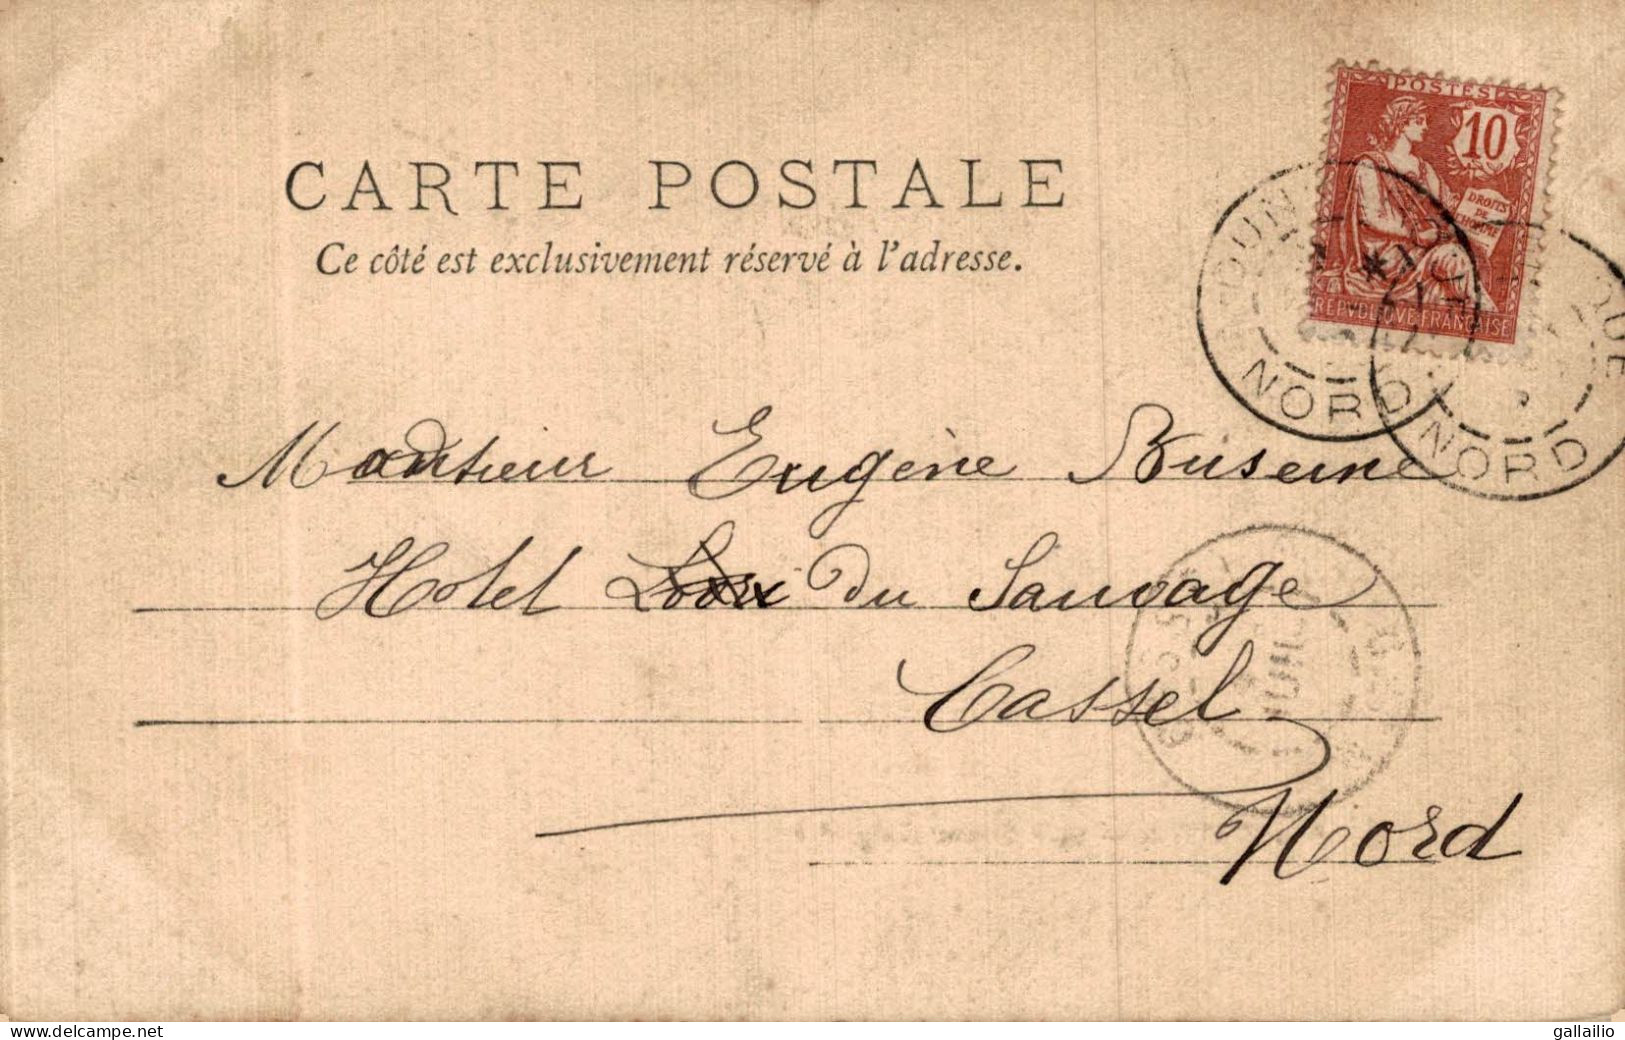 POSTES
10
DROITS
DE
L'HOMME
REPVBLIQVE FRANÇAISE
CARTE POSTALE
Ce côté est exclusivement réservé à l'adresse.
NORD
NORD
Monsieur Eugène
Hotel du Sauvage
Cassel
Nord
www.delcampe.net
gallailio